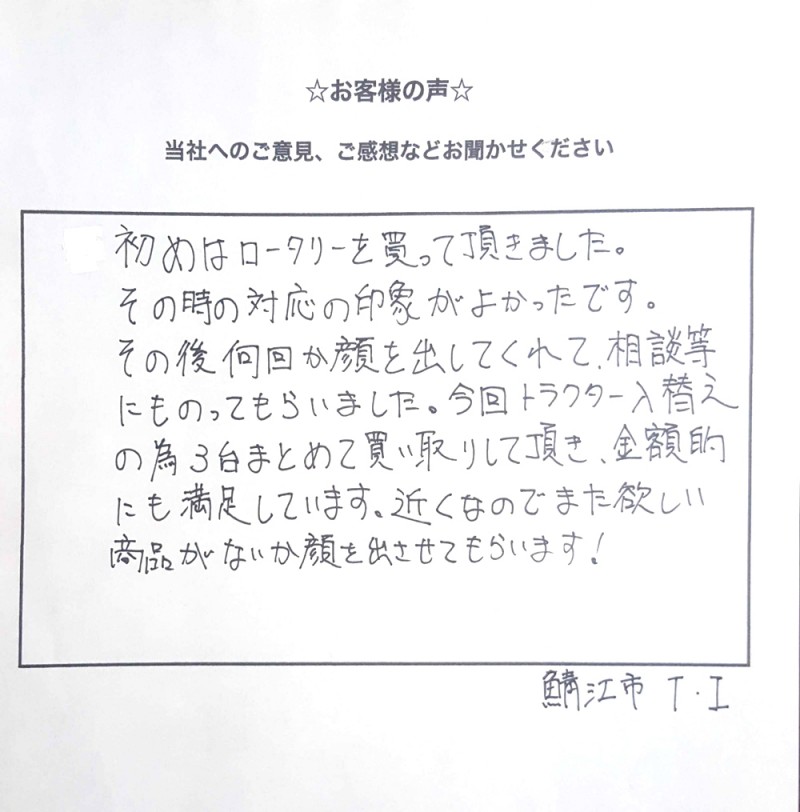 ☆お客様の声☆
当社へのご意見、ご感想などお聞かせください
初めはロータリーを買って頂きました。
その時の対応の印象がよかったです。
その後何回か顔を出してくれて、相談等
にものってもらいました。今回トラクター入替え
の為3台まとめて買い取りして頂き、金額的
にも満足しています。近くなのでまた欲しい
商品がないか顔を出させてもらいます!
鯖江市 T・I